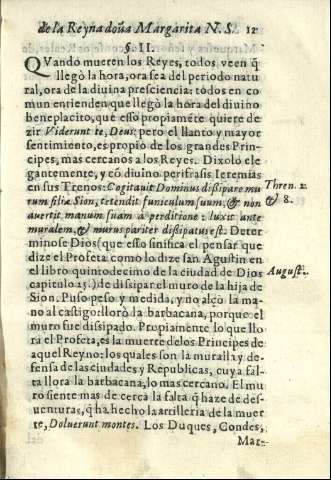 de la Reyna doña Margarita N. S. 12
§ II.
QVando mueren los Reyes, todos veen q̃
llegò la hora, ora sea del periodo natu
ral, ora de la divina presciencia: todos en co
mun entienden que llegò la hora del divino
beneplacito, que esso propiamẽte quiere de
zir Viderunt te, Deus: pero el llanto y mayor
sentimiento, es propio de los grandes Prin
cipes, mas cercanos a los Reyes. Dixolo ele
gantemente, y cõ divino perifrasis Ieremias
en sus Trenos: Cogitauit Dominus dissipare mu
rum filiæ Sion, tetendit funiculum suum, & non
auertit manum suam à perditione: luxit ante
murale, & murus pariter dissipatus est: Deter
minose Dios (que esso sinifica el pensar que
dize el Profeta como lo dize san Agustin en
el libro quintodecimo de la ciudad de Dios
capitulo 25.) de dissipar el muro de la hija de
Sion. Puso peso y medida, y no alçò la ma
no al castigo: llorò la barbacana, porque el
muro fue dissipado. Propiamente lo que llo
ra el Profeta, es la muerte de los Principes de
aquel Reyno: los quales son la muralla y de-
fensa de las ciudades y Republicas, cuya fal-
ta llora la barbacana, lo mas cercano. El mu
ro siente mas de cerca la falta q̃ haze de des-
uenturas, q̃ ha hecho la artilleria de la muer
te, Doluerunt montes. Los Duques, Condes,
Mar-
Thren. 2.
& 8.
August.